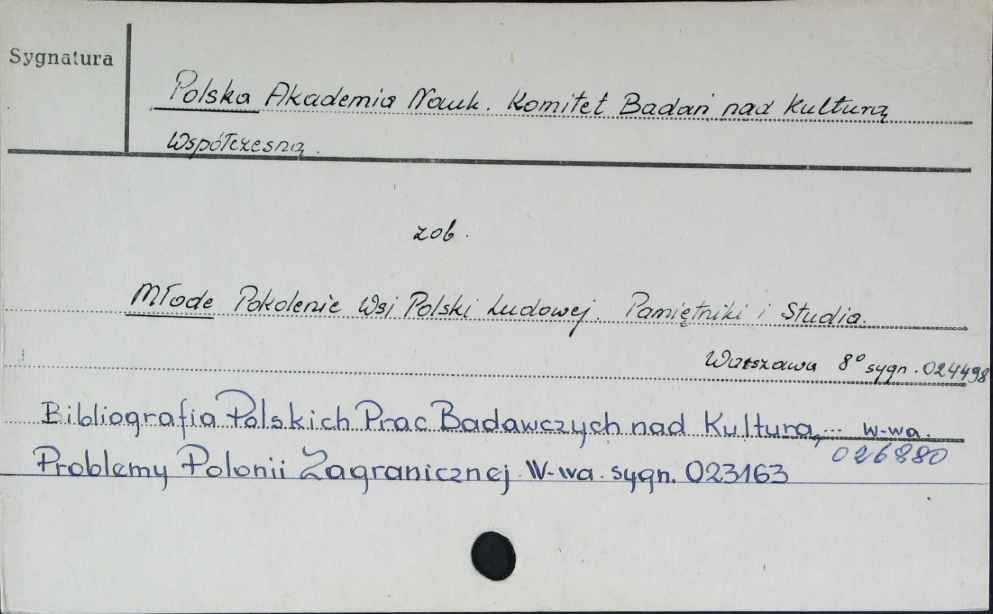 Sygnatura
Polska Akademia Nauk. Komitet Badań nad Kulturą
Współczesną.
zob.
Młode Pokolenie Wsi Polski Ludowej. Pamiętniki i Studia.
Warszawa 8° sygn. 024498
Bibliografia Polskich Prac Badawczych nad Kulturą,... W-wa.
026880
Problemy Polonii Zagranicznej. W-wa. sygn. 023163